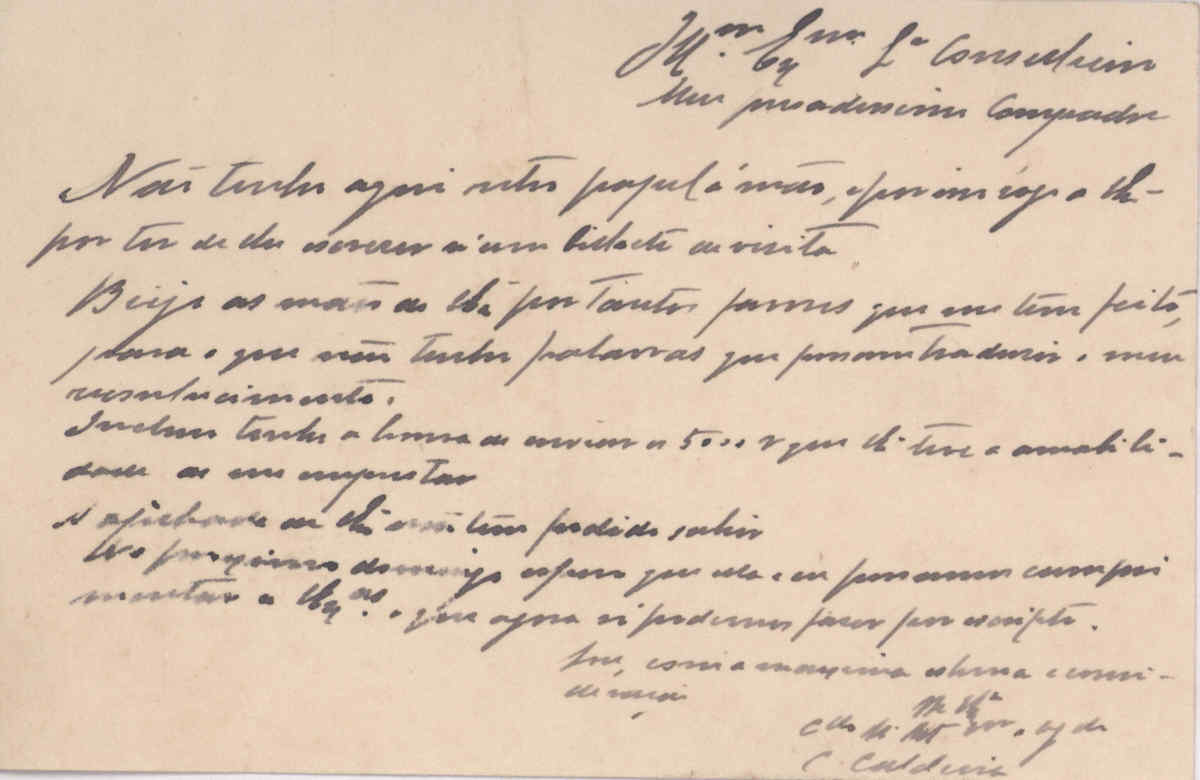 Ill.mo Ex.mo Sr Conselheiro
Meu presadissimo Compadre
Não tenho aqui outro papel á mão, e por isso a VEx
por ter de lhe escrever n'um bilhete de visita.
Beijo as mãos de VExa por tantos favores que me tem feito,
para o que não tenho palavras que possam traduzir o meu
reconhecimento.
Incluso tenho a honra de enviar os 5000 r que VEx teve a amabili-
dade de me emprestar
A afilhada de VExa não tem podido sahir
No proximo domingo espero que ella e eu possamos cumpri
mentar a VExas, o que agora só podemos fazer por escripto.
Sou, com a maxima estima e consi-
deração
De VExa
cdo e obgdo
C Caldeira